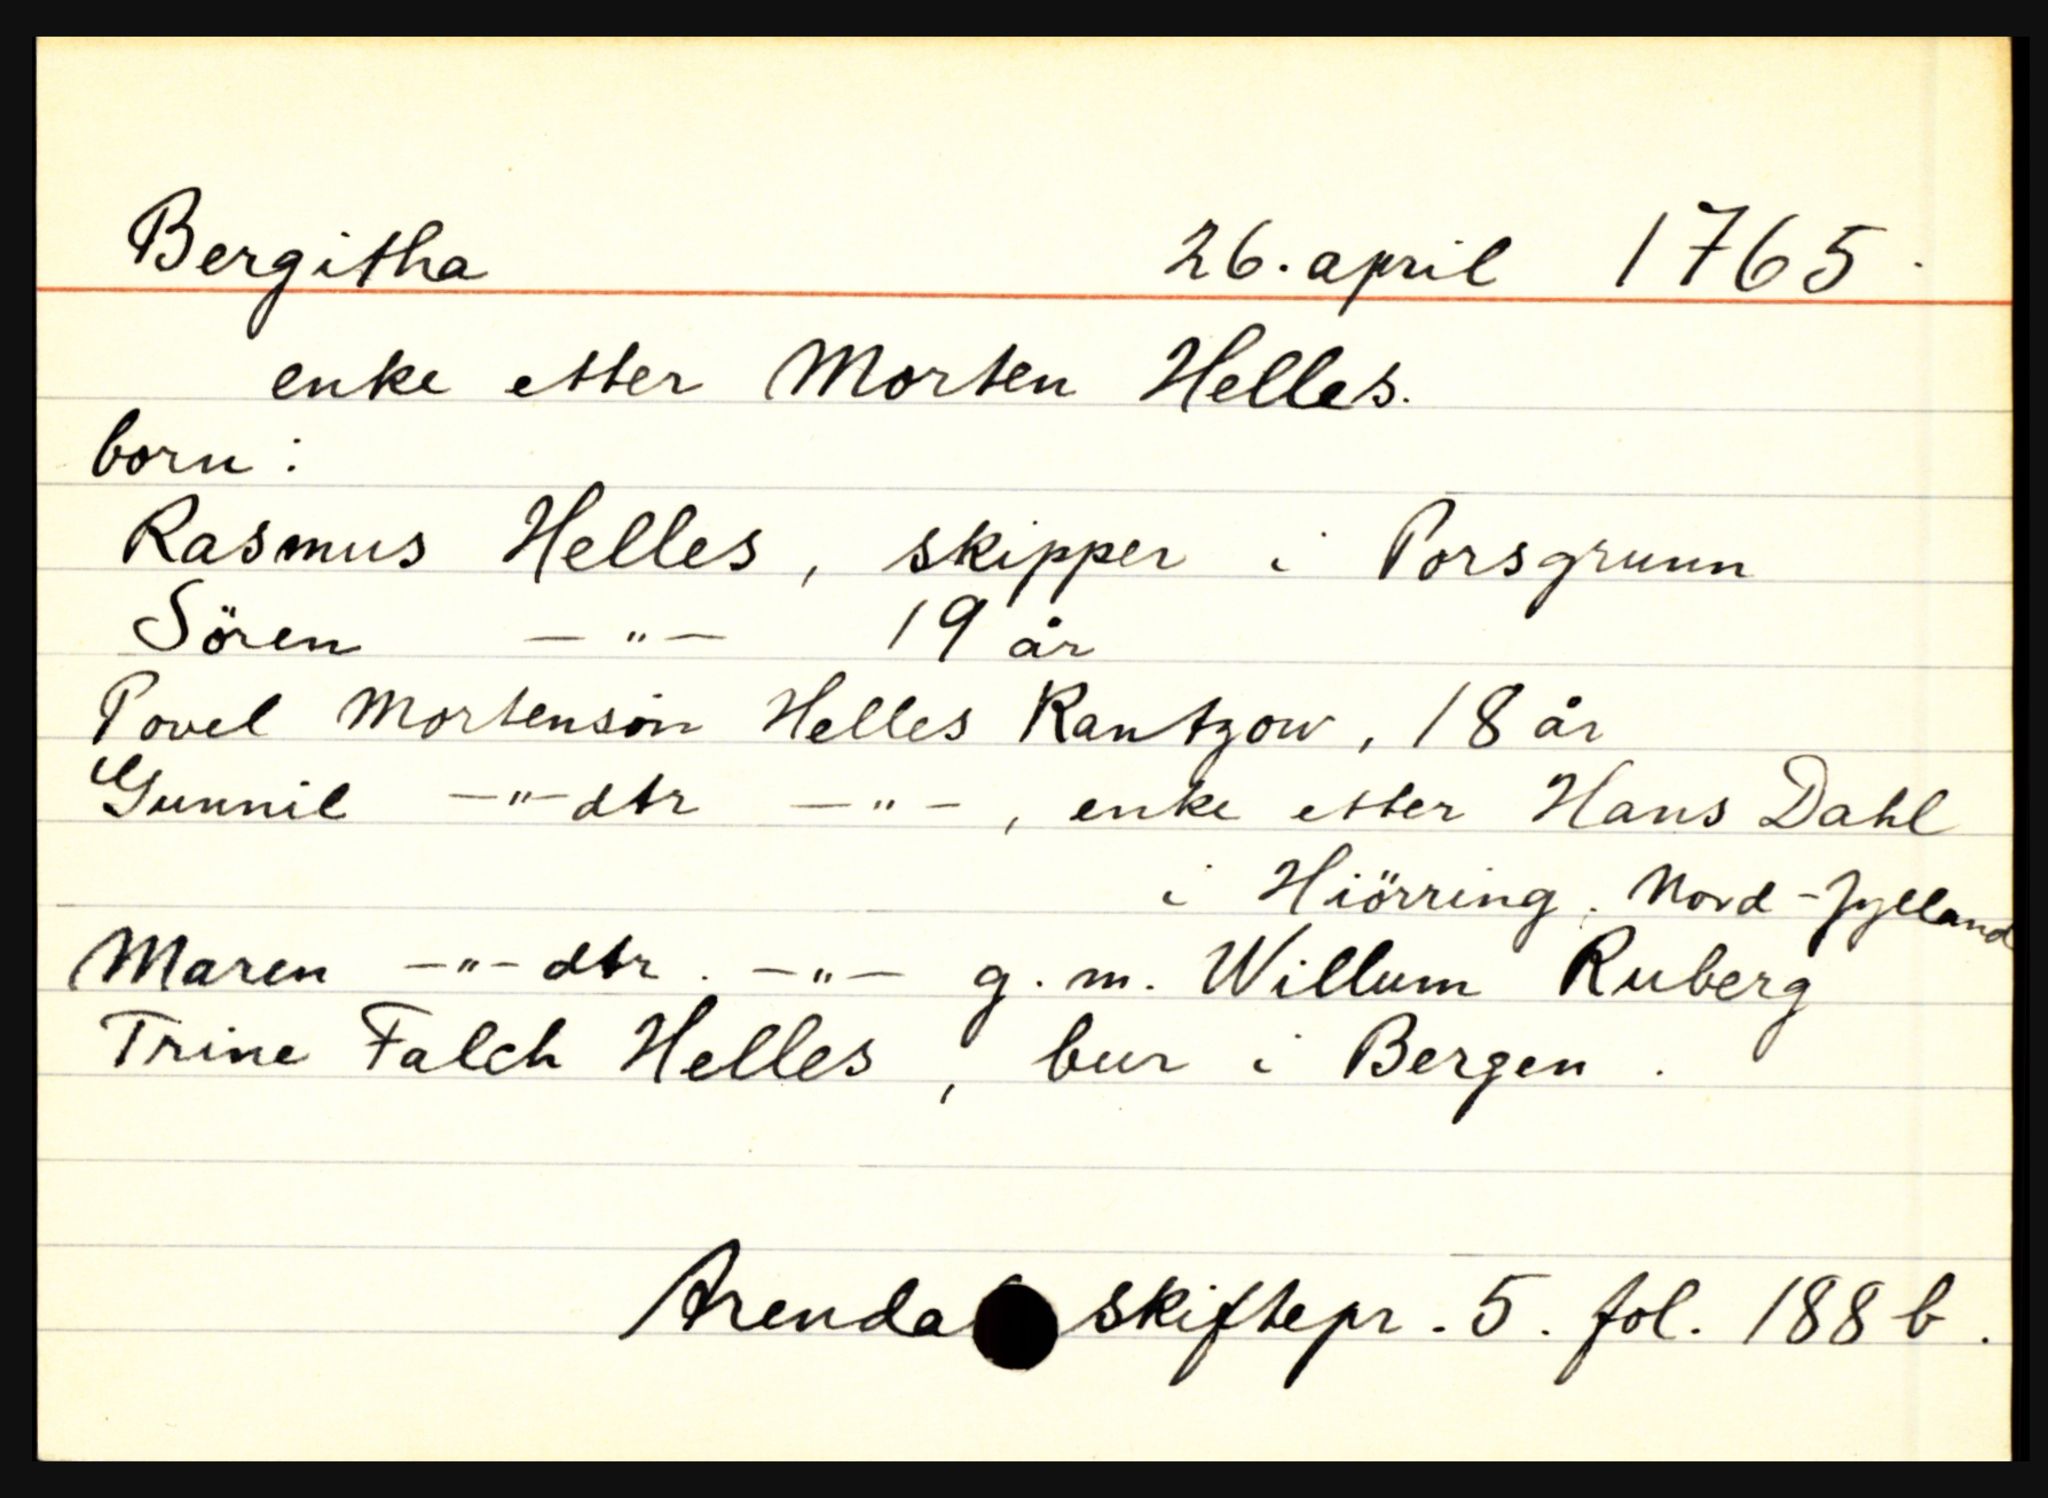 Bergitha 26. april 1765.
enke etter Morten Helles.
born:
Rasmus Helles, skipper i Porsgrunn
Sören —"— 19 år
Povel Mortenson Helles Rantzow, 18 år
Gunnil —"— dtr —"—, enke etter Hans Dahl
i Hiörring. Nord-Jylland
Maren —"— dtr. —"— g. m. Willum Ruberg
Trine Falch Helles, bur i Bergen.
Arendal skiftepr. 5. fol. 188 b.